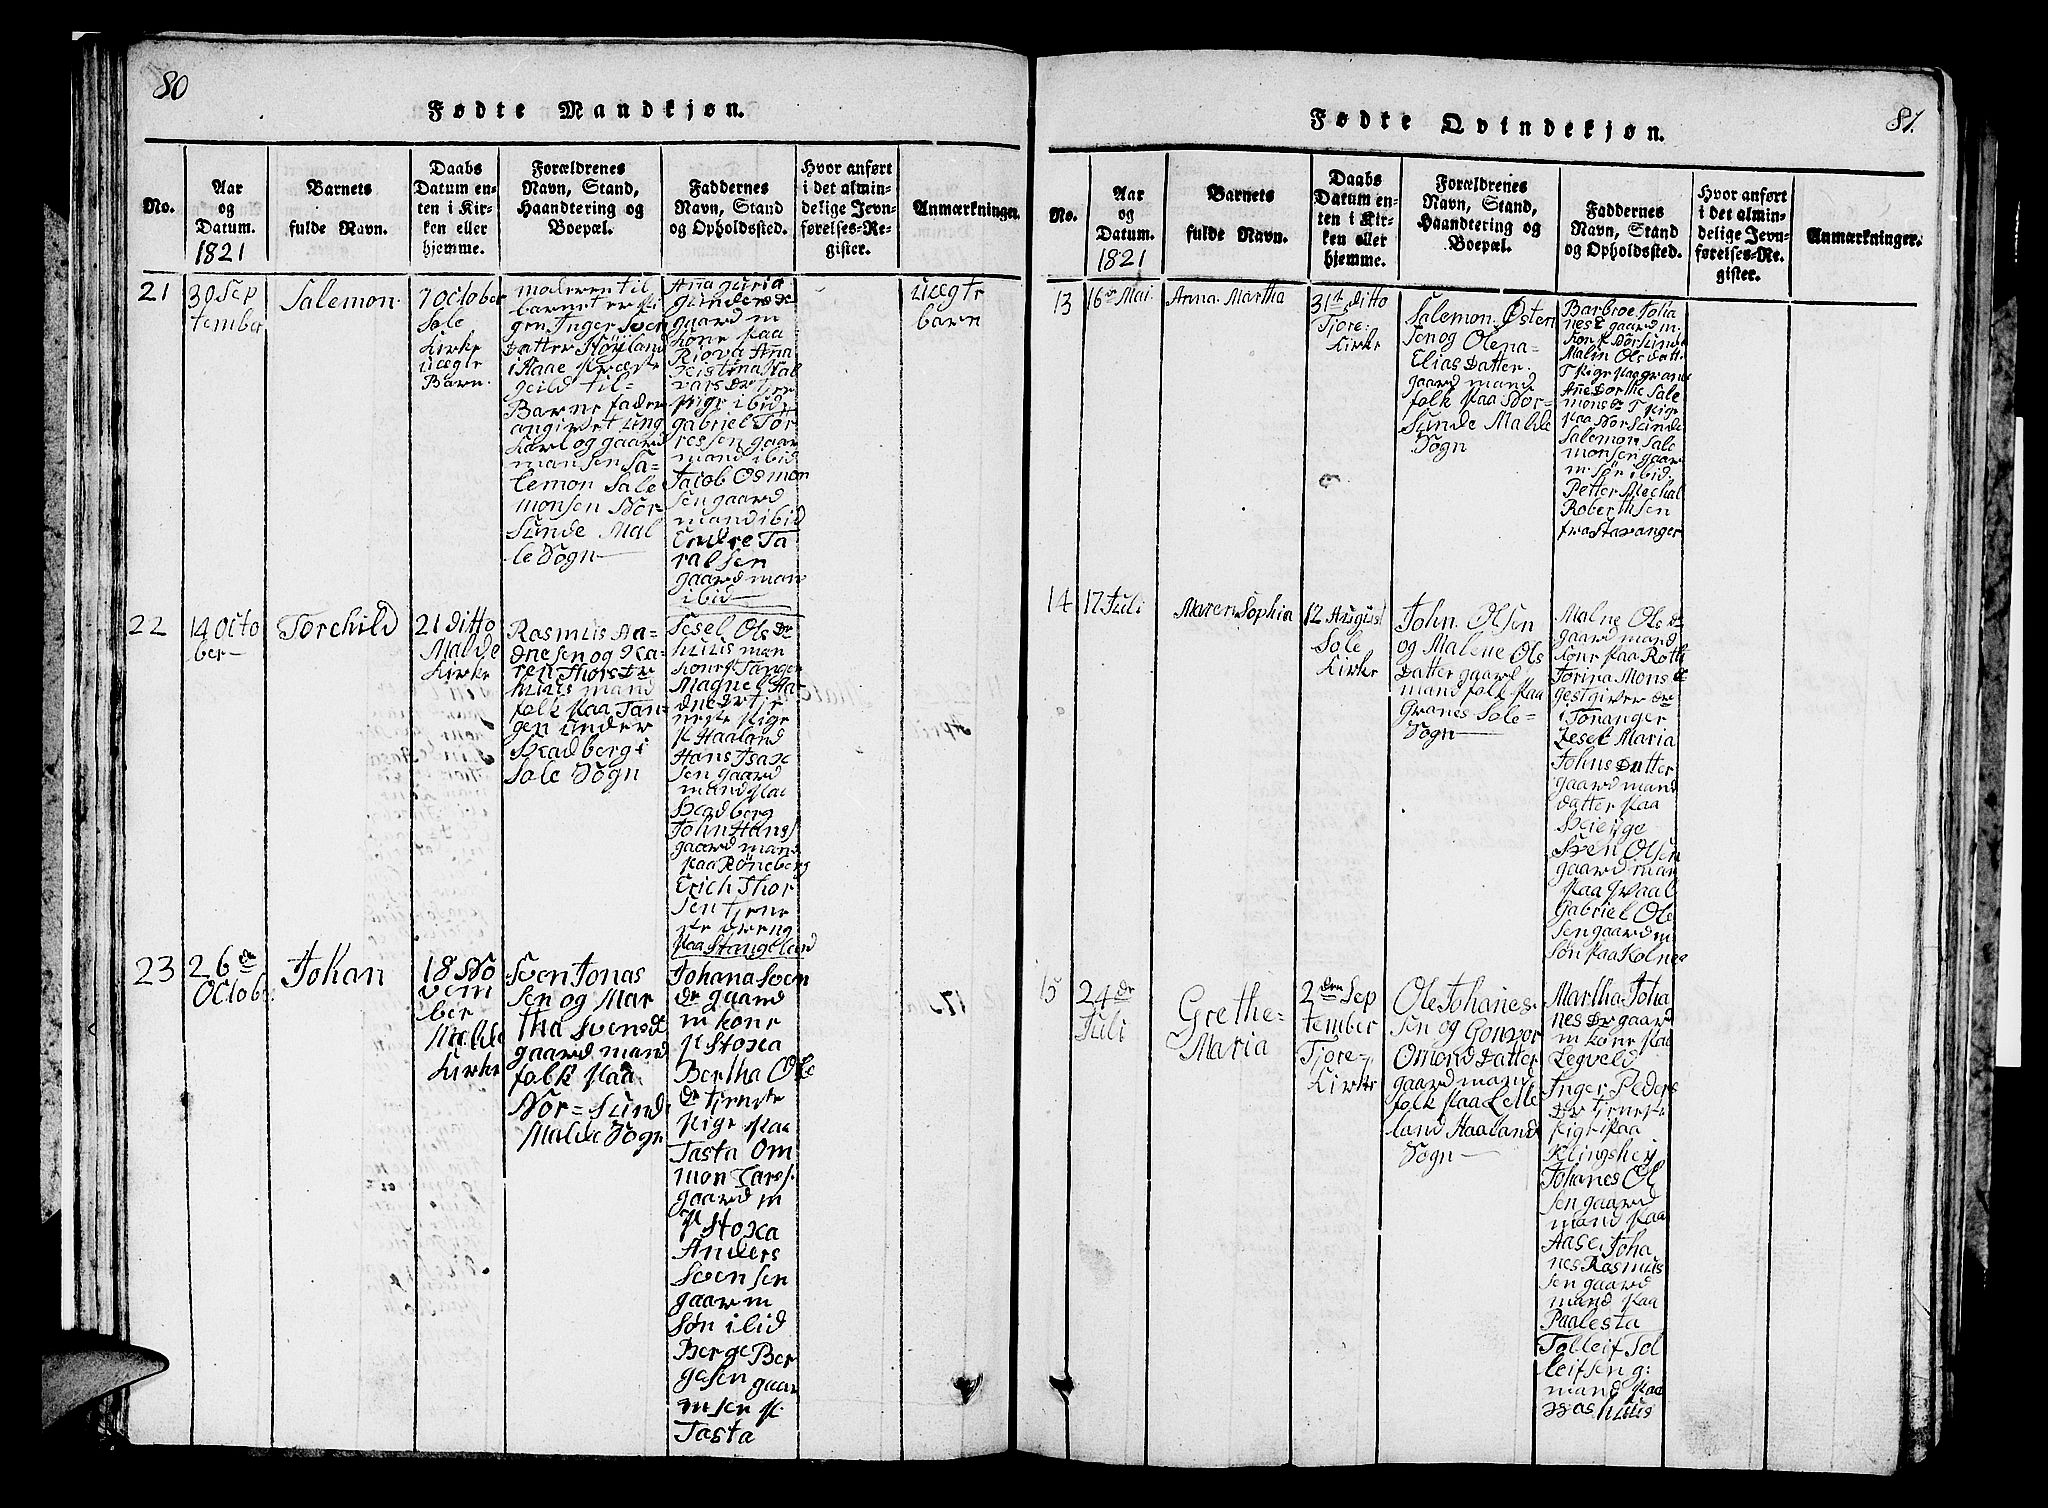 80
Fødte Mandkjøn.
No.
Aar
og
Datum.
1821
Barnets
fulde Navn.
Daabs
Datum en-
ten i Kir-
ken eller
hjemme.
Forældrenes
Navn, Stand,
Haandtering og
Boepæl.
Faddernes
Navn, Stand
og Opholdssted.
Hvor anført
i det almin-
delige Jevn-
førelses-Re-
gister.
Anmærkninger.
21
30 Sep
tember
Salemon.
7 October
Sole
Kirke
uægte
Barn.
moderen til
barnet er Pi
gen Inger Sven
Datter
i Haae Præste
geild til-
Barne fader
angivet ung
karl og gaard
mansen Sa-
lemon Sale
monsen Nor-
Sunde Mal
le Sogn
Aña guria
gunders de
gaard m
kone paa
Kristina Hal
vars dr tjen
pige ibid
gabriel Tor
ressen gaar
mand ibid
Jacob Osmon
sen gaard
mand ibid
Endre Ta
ralsen
gaard man
ibid
uægte
barn
22
14 Octo
ber
Torchild
21 ditto
Malde
Kirke
Rasmus Aa-
dnesen og Ka-
ren Thors Dr
huus mand
folk paa Tan-
gen under
Skadberg i
Sole Sogn
Tesel Ols Dr
huus man
kone p Tangen
Magnel Aa-
dne Dr tje
neste pige
p Haaland
Hans Isax
sen gaard
mand paa
Skadberg
John Hans
gaard mand
paa Röneberg
Erich Thor
sen tjene
ste dreng
paa Stangeland
23
26 de
October
Johan
18 No
vem
ber
Malde
Kirke
Sven Jonas
sen og Mar
tha Svensdt
gaard mand
folk paa
Nor=Sund
Malde Sogn
Johana Sven
dr gaard
m kone
p Stoxa
Bertha Ole
dr tjeneste
pige paa
Tasta Om
mon Larss
gaard m
p Stoxa
Anders
Svensen
gaar m
Søn ibid
Berge Ber
gesen gaar
msen p.
Tasta
81.
Fødte Qvindekjøn.
No.
Aar
og
Datum.
1821
Barnets
fulde Navn.
Daabs
Datum en-
ten i Kir-
ken eller
hjemme.
Forældrenes
Navn, Stand,
Haandtering og
Boepæl.
Faddernes
Navn, Stand
og Opholdssted.
Hvor anført
i det almin-
delige Jevn-
førelses-Re-
gister.
Anmærkninger.
13
16 de Mai.
Anna Martha
31 ditto
Tjore
Kirke
Salemon Osten
sen og Olena-
Elias Datter.
gaard mand
folk paa Nor-
Sunde Malde
Sogn
Barbroe Joha
nes gaard m.
kon p Nør Sunde
Malin Ols datt
T Pige paa grane
Añe Dorthe Sale
mons Dr T Pige
paa Nor Sunde
Salemon Sale
monsen gaar
m søn ibid
Petter Mechal
Roberthsen
fra Stavanger
14
17 Juli
Maren Sophia
12 August
Sole
Kirke
John Olsen
og Malene Ols
Datter gaard
mand folk paa
Granes Sole-
Sogn
Malne Ole dr
gaard mand
kone paa Roth
Torina Mons dr
gestgiver dr
i Tonanger
Zesel Maria
Johns Datter
gaard mand
datter paa
Skieige
Sven Olsen
gaard man
paa
Gabriel Ole
sen gaard m
søn paa Kolnes
15
24 de
Juli
Grethe-
Maria
2 den Sep
tember
Tjore-
Kirke
Ole Johanes-
sen og Gonvor
Omond Datter
gaard mand
folk paa Lelle
land Haaland
Sogn
Martha Joha
nes Dr gaard
m kone paa
Legveld
Inger Peders
Dr tjeneste
pige paa
Klingshey
Johanes Ol
sen gaard
mand paa
Aase Joha
nes Rasmus
sen gaard
mand paa
Paalesta
Tolleif Tol
leifsen g:
mand paa